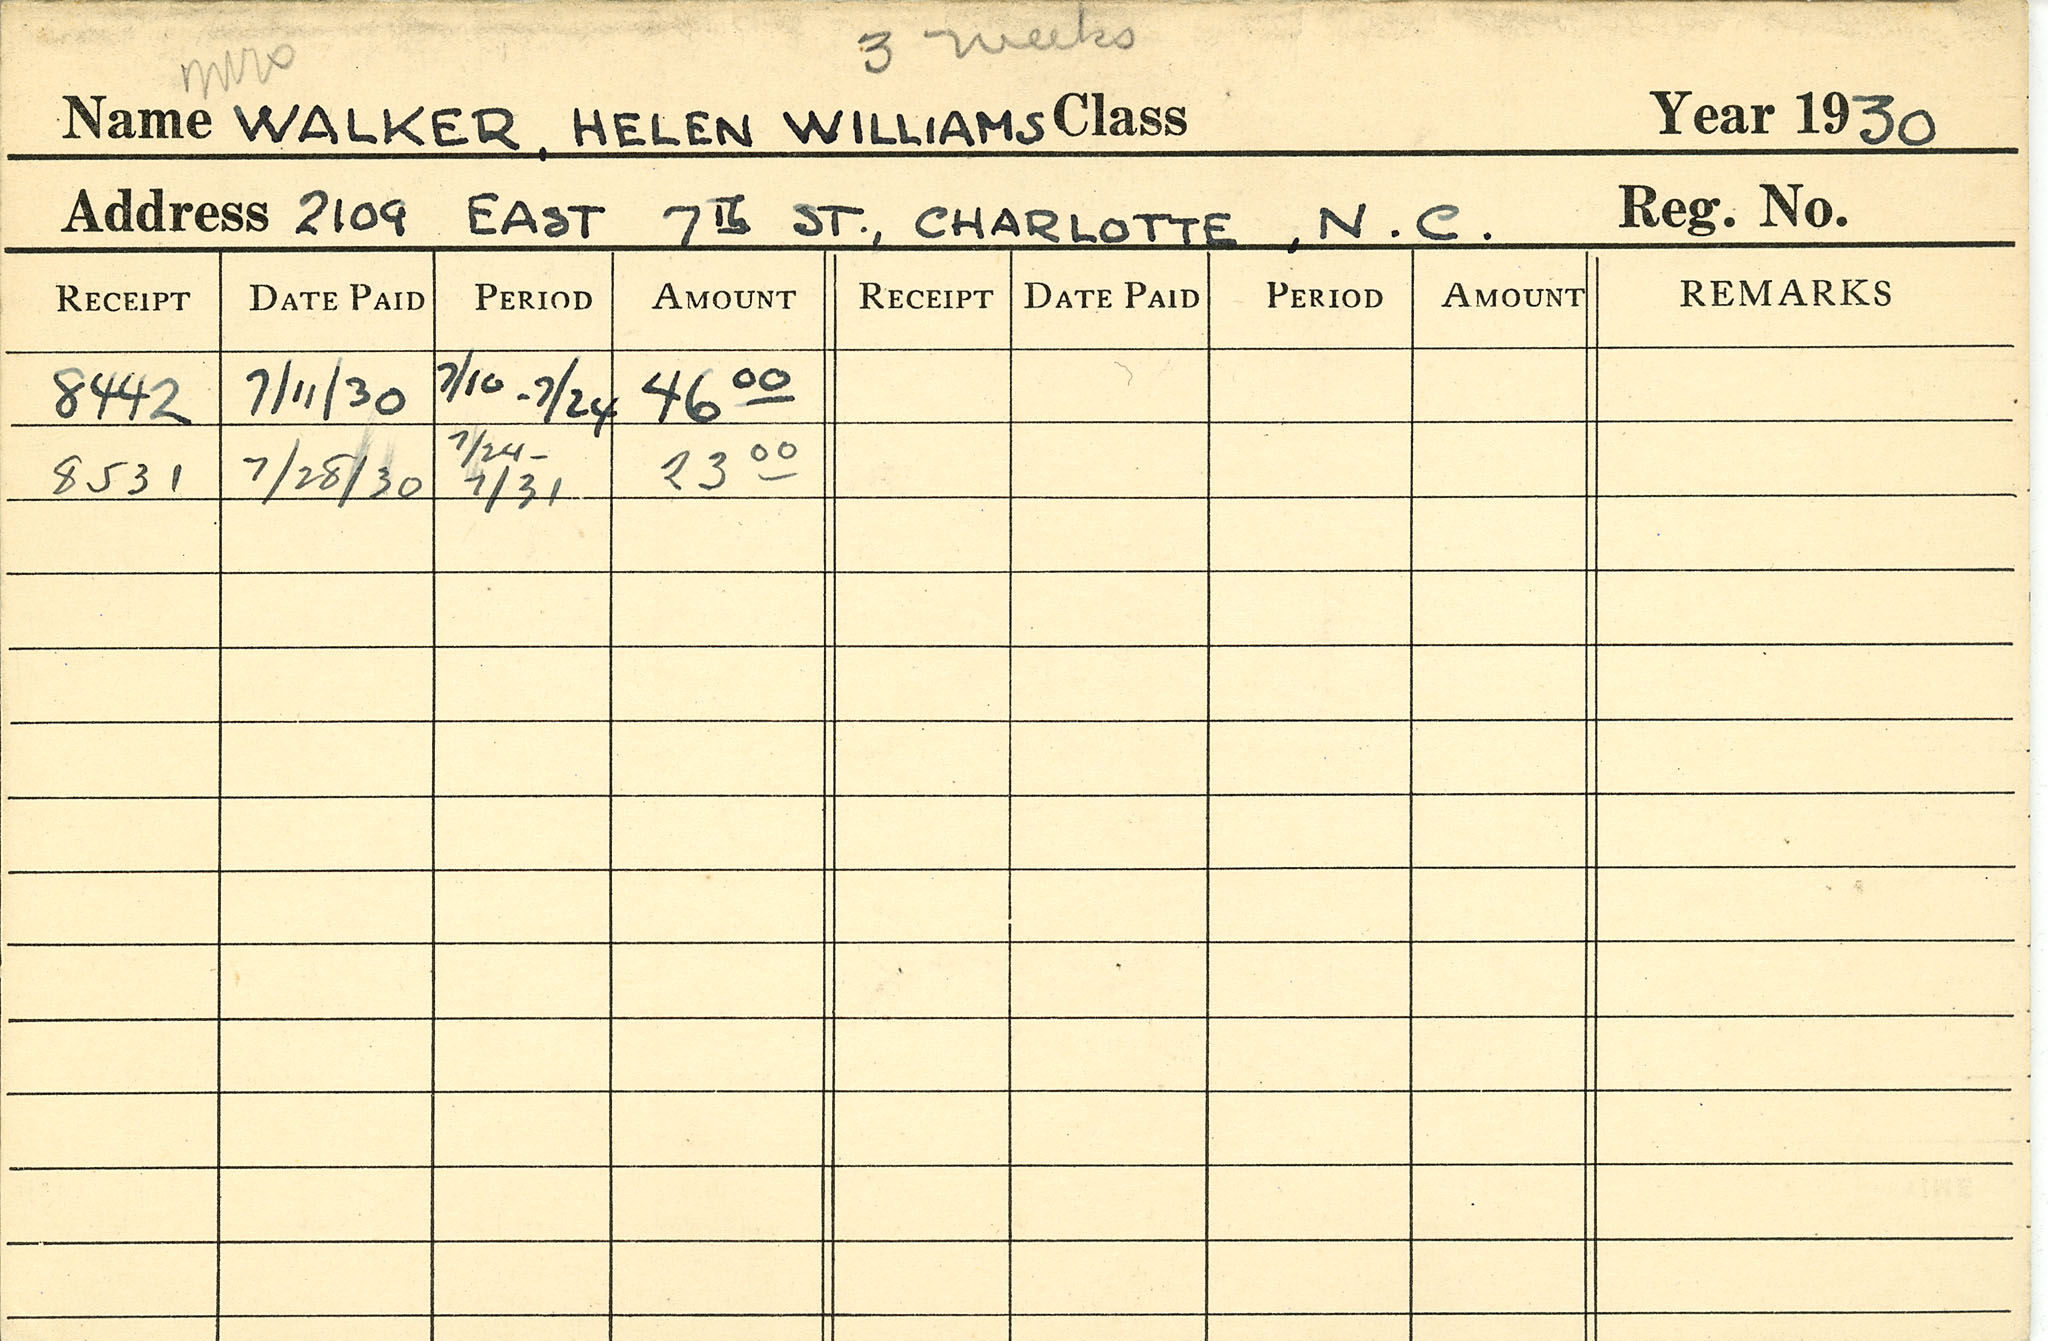 Mrs 3 weeks
Name WALKER, HELEN WILLIAMS Class Year 1930
Address 2109 EAST 7TH ST., CHARLOTTE, N.C. Reg. No.
RECEIPT DATE PAID PERIOD AMOUNT RECEIPT DATE PAID PERIOD AMOUNT REMARKS
8442 7/11/30 7/10 - 7/24 46 00
8531 7/28/30 7/24 - 7/31 23 00